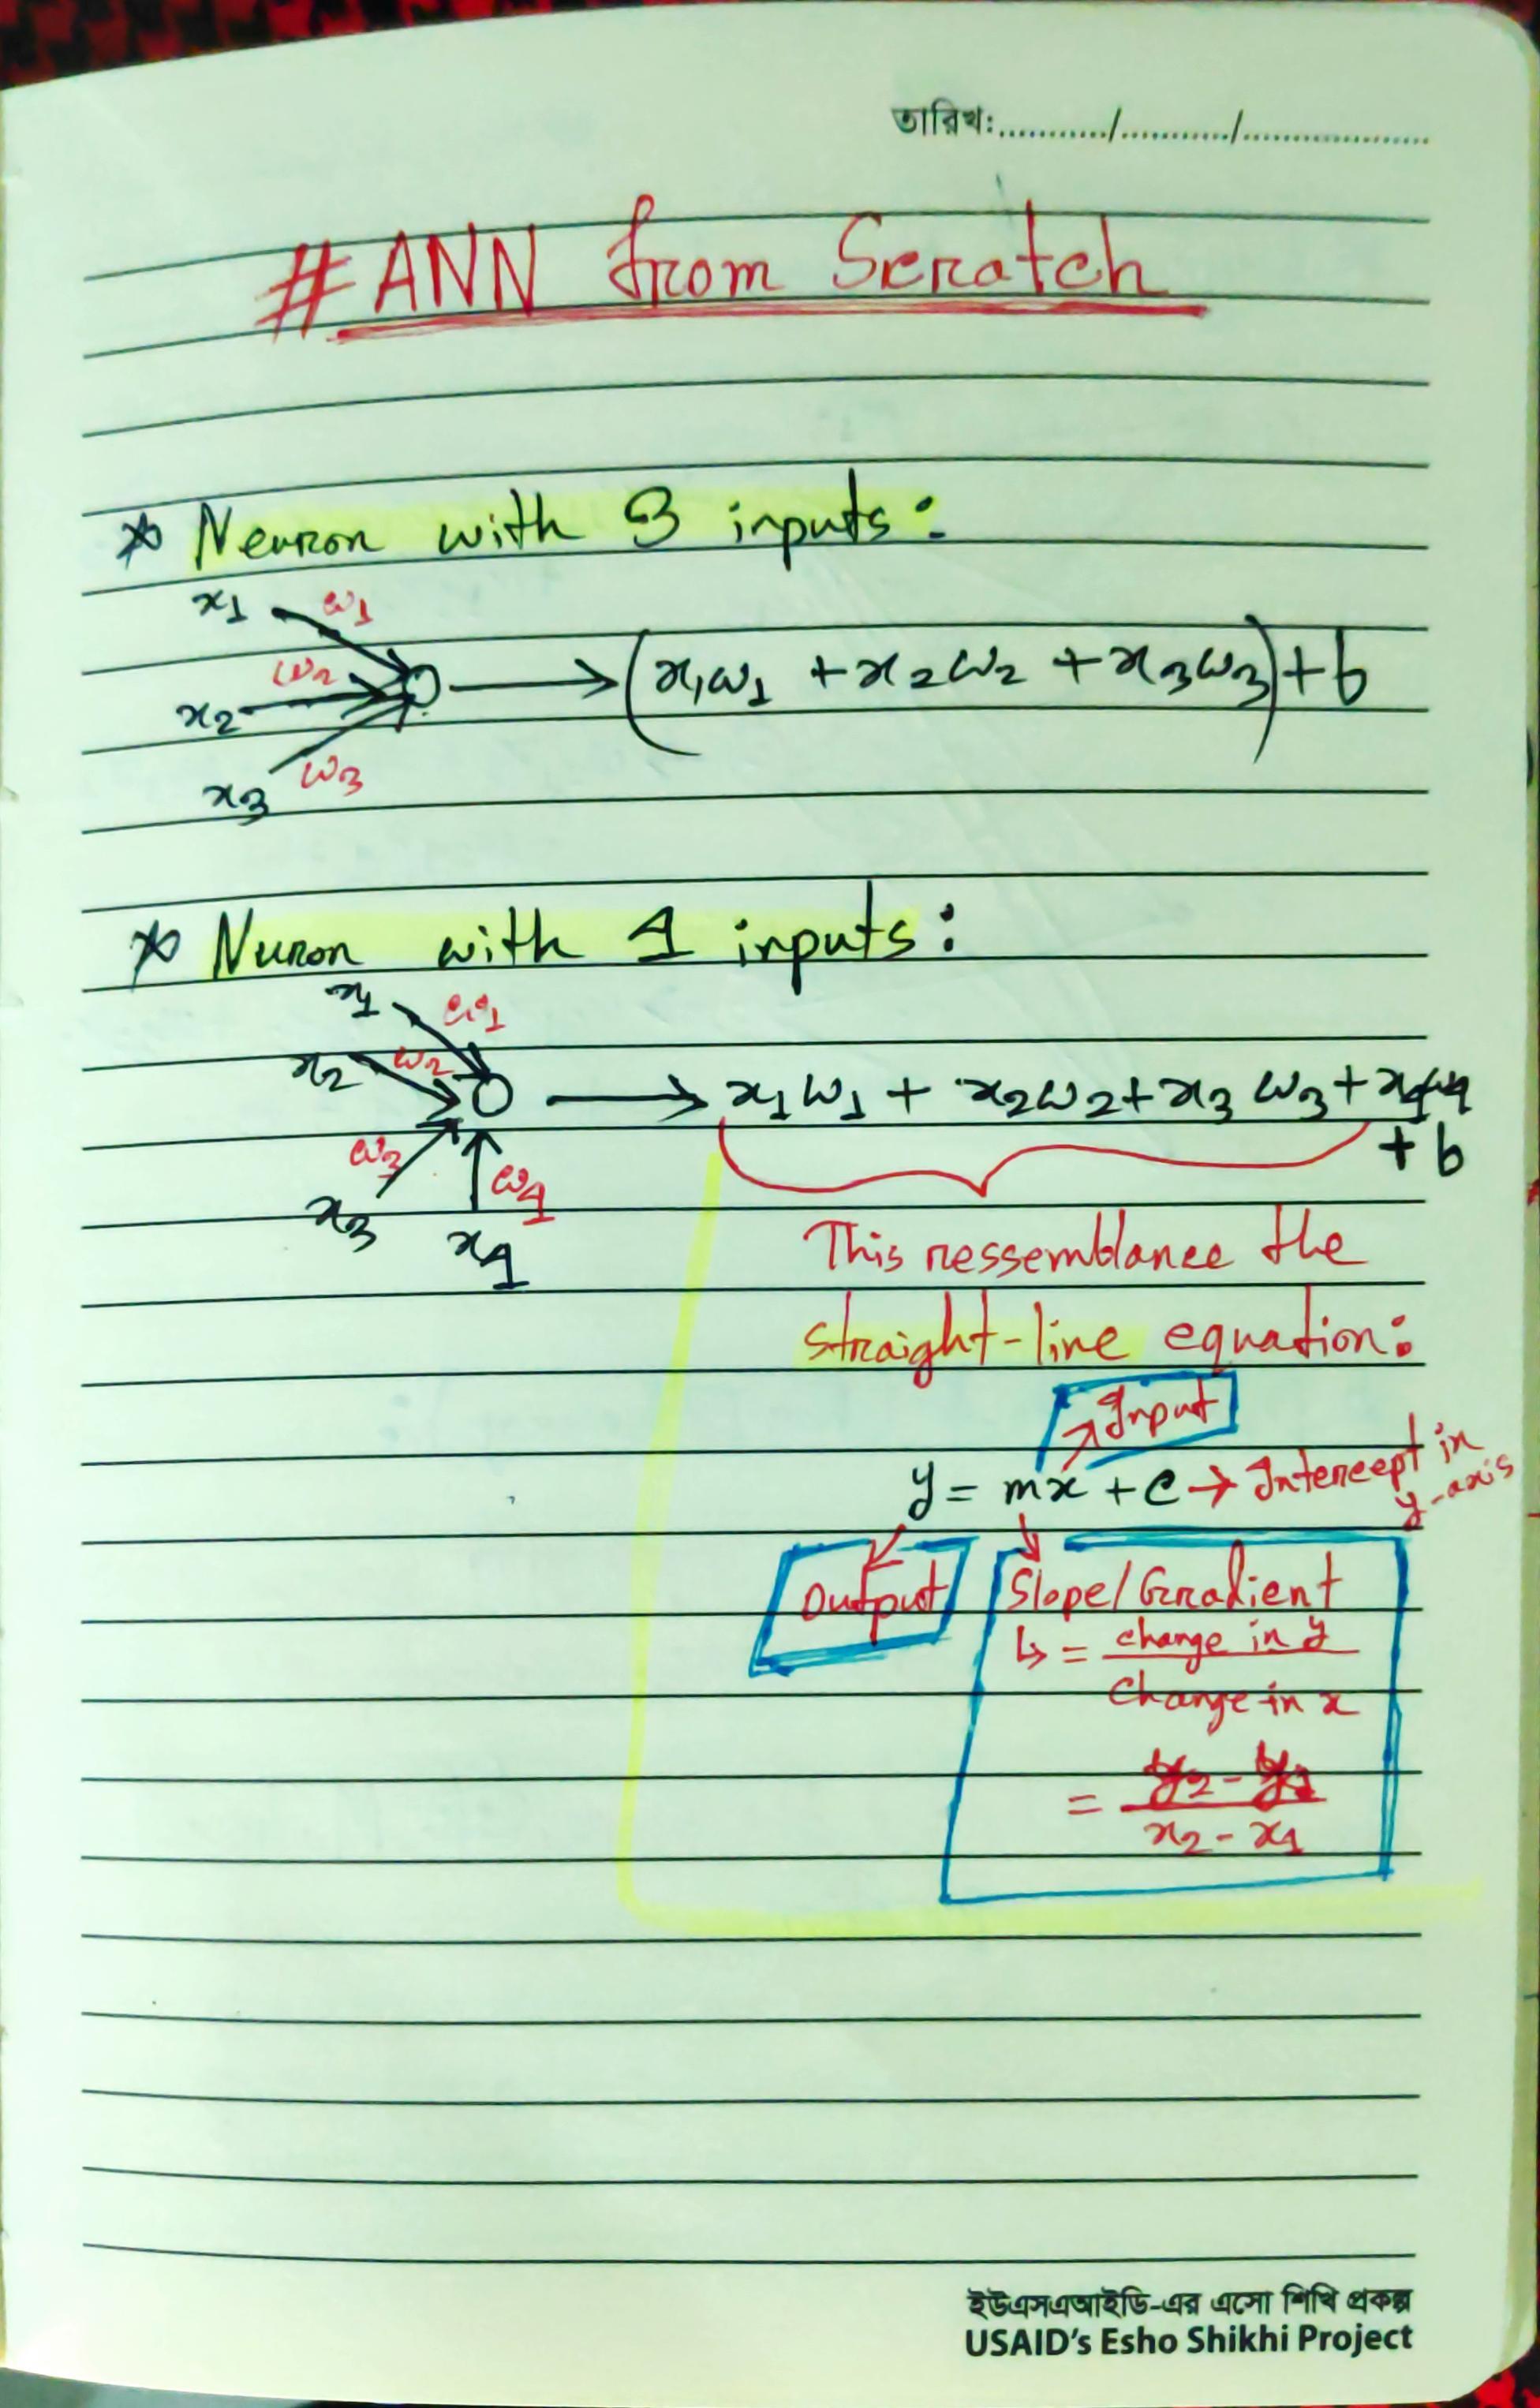 তারিখ:............/............/....................
# ANN from Scratch
* Neuron with 3 inputs:
x1 w1
w2
x2
(x1w1 + x2w2 + x3w3) + b
w3
x3
* Nuron with 4 inputs:
x1 w1
x2 w2
x1w1 + x2w2 + x3w3 + x4w4
+ b
w3
x3
w4
x4
This ressemblance the
straight-line equation:
Input
y = mx + c → Intercept in
y-axis
Output
Slope/Gradient
↳ = change in y
Change in x
= y2 - y1
x2 - x1
ইউএসএআইডি-এর এসো শিখি প্রকল্প
USAID's Esho Shikhi Project